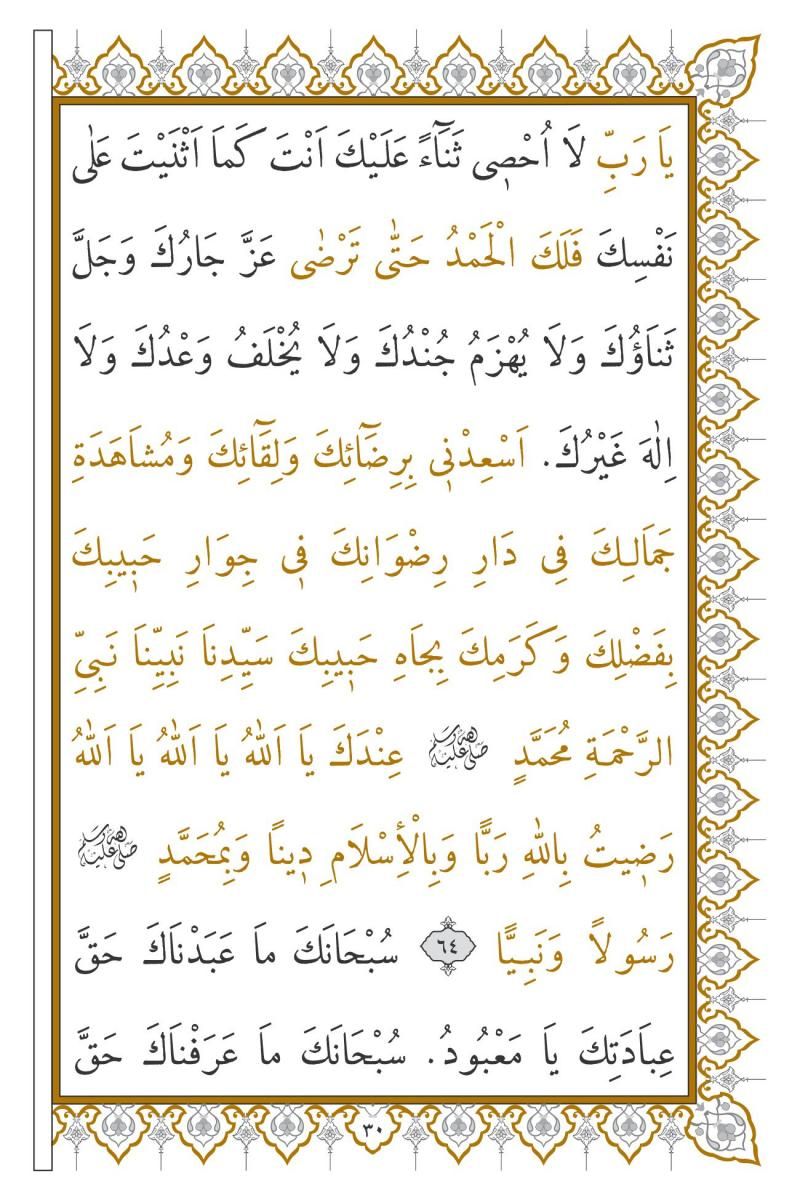 يَا رَبِّ لَا اُحْصِى ثَنَٓاءً عَلَيْكَ اَنْتَ كَمَا اَثْنَيْتَ عَلٰى
نَفْسِكَ فَلَكَ الْحَمْدُ حَتّٰى تَرْضٰى عَزَّ جَارُكَ وَجَلَّ
ثَنَاؤُكَ وَلَا يُهْزَمُ جُنْدُكَ وَلَا يُخْلَفُ وَعْدُكَ وَلَا
اِلٰهَ غَيْرُكَ. اَسْعِدْنِى بِرِضَٓائِكَ وَلِقَٓائِكَ وَمُشَاهَدَةِ
جَمَالِكَ فِى دَارِ رِضْوَانِكَ فِى جِوَارِ حَبِيبِكَ
بِفَضْلِكَ وَكَرَمِكَ بِجَاهِ حَبِيبِكَ سَيِّدِنَا نَبِيِّنَا نَبِىِّ
الرَّحْمَةِ مُحَمَّدٍ ﷺ عِنْدَكَ يَا اَللّٰهُ يَا اَللّٰهُ يَا اَللّٰهُ
رَضِيتُ بِاللّٰهِ رَبًّا وَبِالْأِسْلَامِ دِينًا وَبِمُحَمَّدٍ ﷺ
رَسُولًا وَنَبِيًّا ٦٤ سُبْحَانَكَ مَا عَبَدْنَاكَ حَقَّ
عِبَادَتِكَ يَا مَعْبُودُ. سُبْحَانَكَ مَا عَرَفْنَاكَ حَقَّ
٣٠